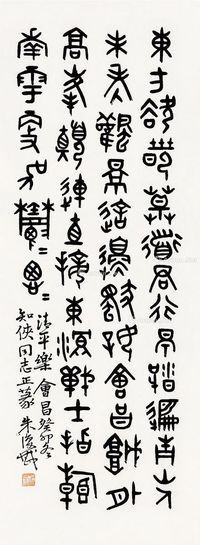 東方欲曉莫道君行早踏遍青山人
未老風景這邊獨好會昌城外
高峰顛連直接東溟戰士指看
南粵更加鬱〻葱〻
清平樂 會昌 癸卯冬
知俠同志正篆 朱復戡